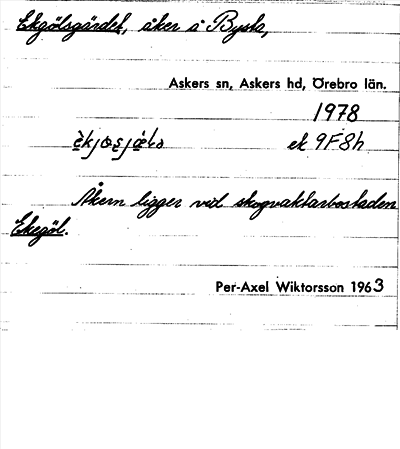 Ekgölsgärdet, åker å Bysta,
Askers sn, Askers hd, Örebro län.
1978
ek 9F8h
Åkern ligger vid skogvaktarbostaden
Ekegöl.
Per-Axel Wiktorsson 1963